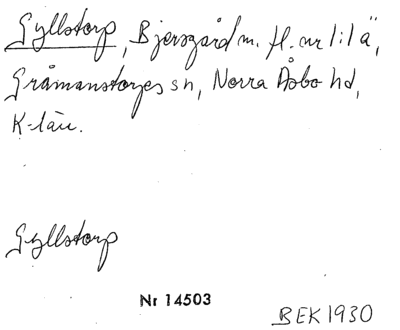 Gyllstorp, Bjersgård m. fl. nr 1:1 ä,
Gråmanstorps sn, Norra Åsbo hd,
K-län.
Gyllstorp
Nr 14503
BEK 1930